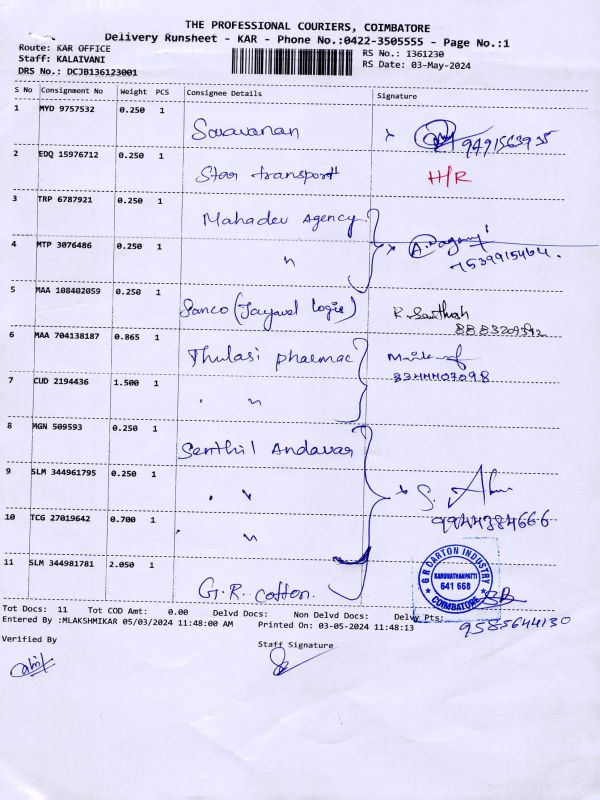 THE PROFESSIONAL COURIERS, COIMBATORE
Delivery Runsheet - KAR - Phone No.:0422-3505555 - Page No.:1
Route: KAR OFFICE
RS No.: 1361230
Staff: KALAIVANI
RS Date: 03-May-2024
DRS No.: DCJB136123001
S No Consignment No Weight PCS Consignee Details Signature
1 MYD 9757532 0.250 1 Saravanan
2 EDQ 15976712 0.250 1 Star transport H/R
3 TRP 6787921 0.250 1 Mahadev Agency
4 MTP 3076486 0.250 1 "
7539915464.
5 MAA 108402059 0.250 1 Sanco (Jayavel logis) R. Santhosh
8883209392
6 MAA 704138187 0.865 1 Thulasi pharmac
7 CUD 2194436 1.500 1 "
8 MGN 509593 0.250 1 Senthil Andavar
9 SLM 344961795 0.250 1 "
9944384666
10 TCG 27019642 0.700 1 "
11 SLM 344981781 2.050 1 G.R. cotton.
G R CARTON INDUSTRY
KARUNATHAMPATTI
641 668
COIMBATORE
Tot Docs: 11 Tot COD Amt: 0.00 Delvd Docs: Non Delvd Docs: Delvy Pts:
9585644130
Entered By :MLAKSHMIKAR 05/03/2024 11:48:00 AM Printed On: 03-05-2024 11:48:13
Verified By
Staff Signature